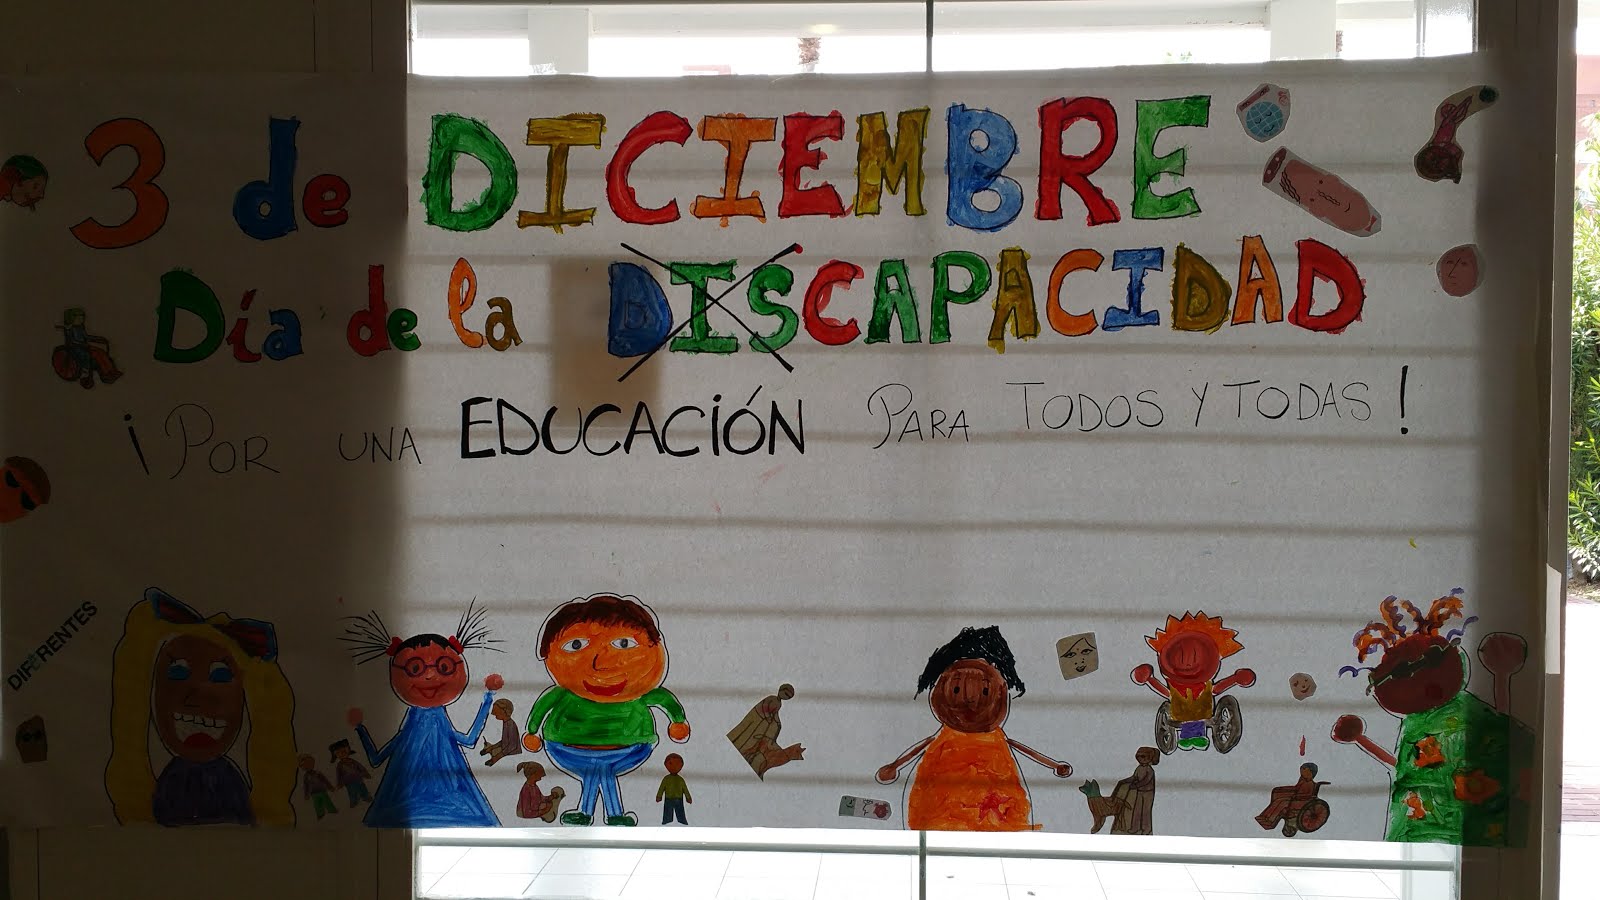 3 de DICIEMBRE
Día de la DISCAPACIDAD
¡POR UNA EDUCACIÓN PARA TODOS Y TODAS!
DIFERENTES